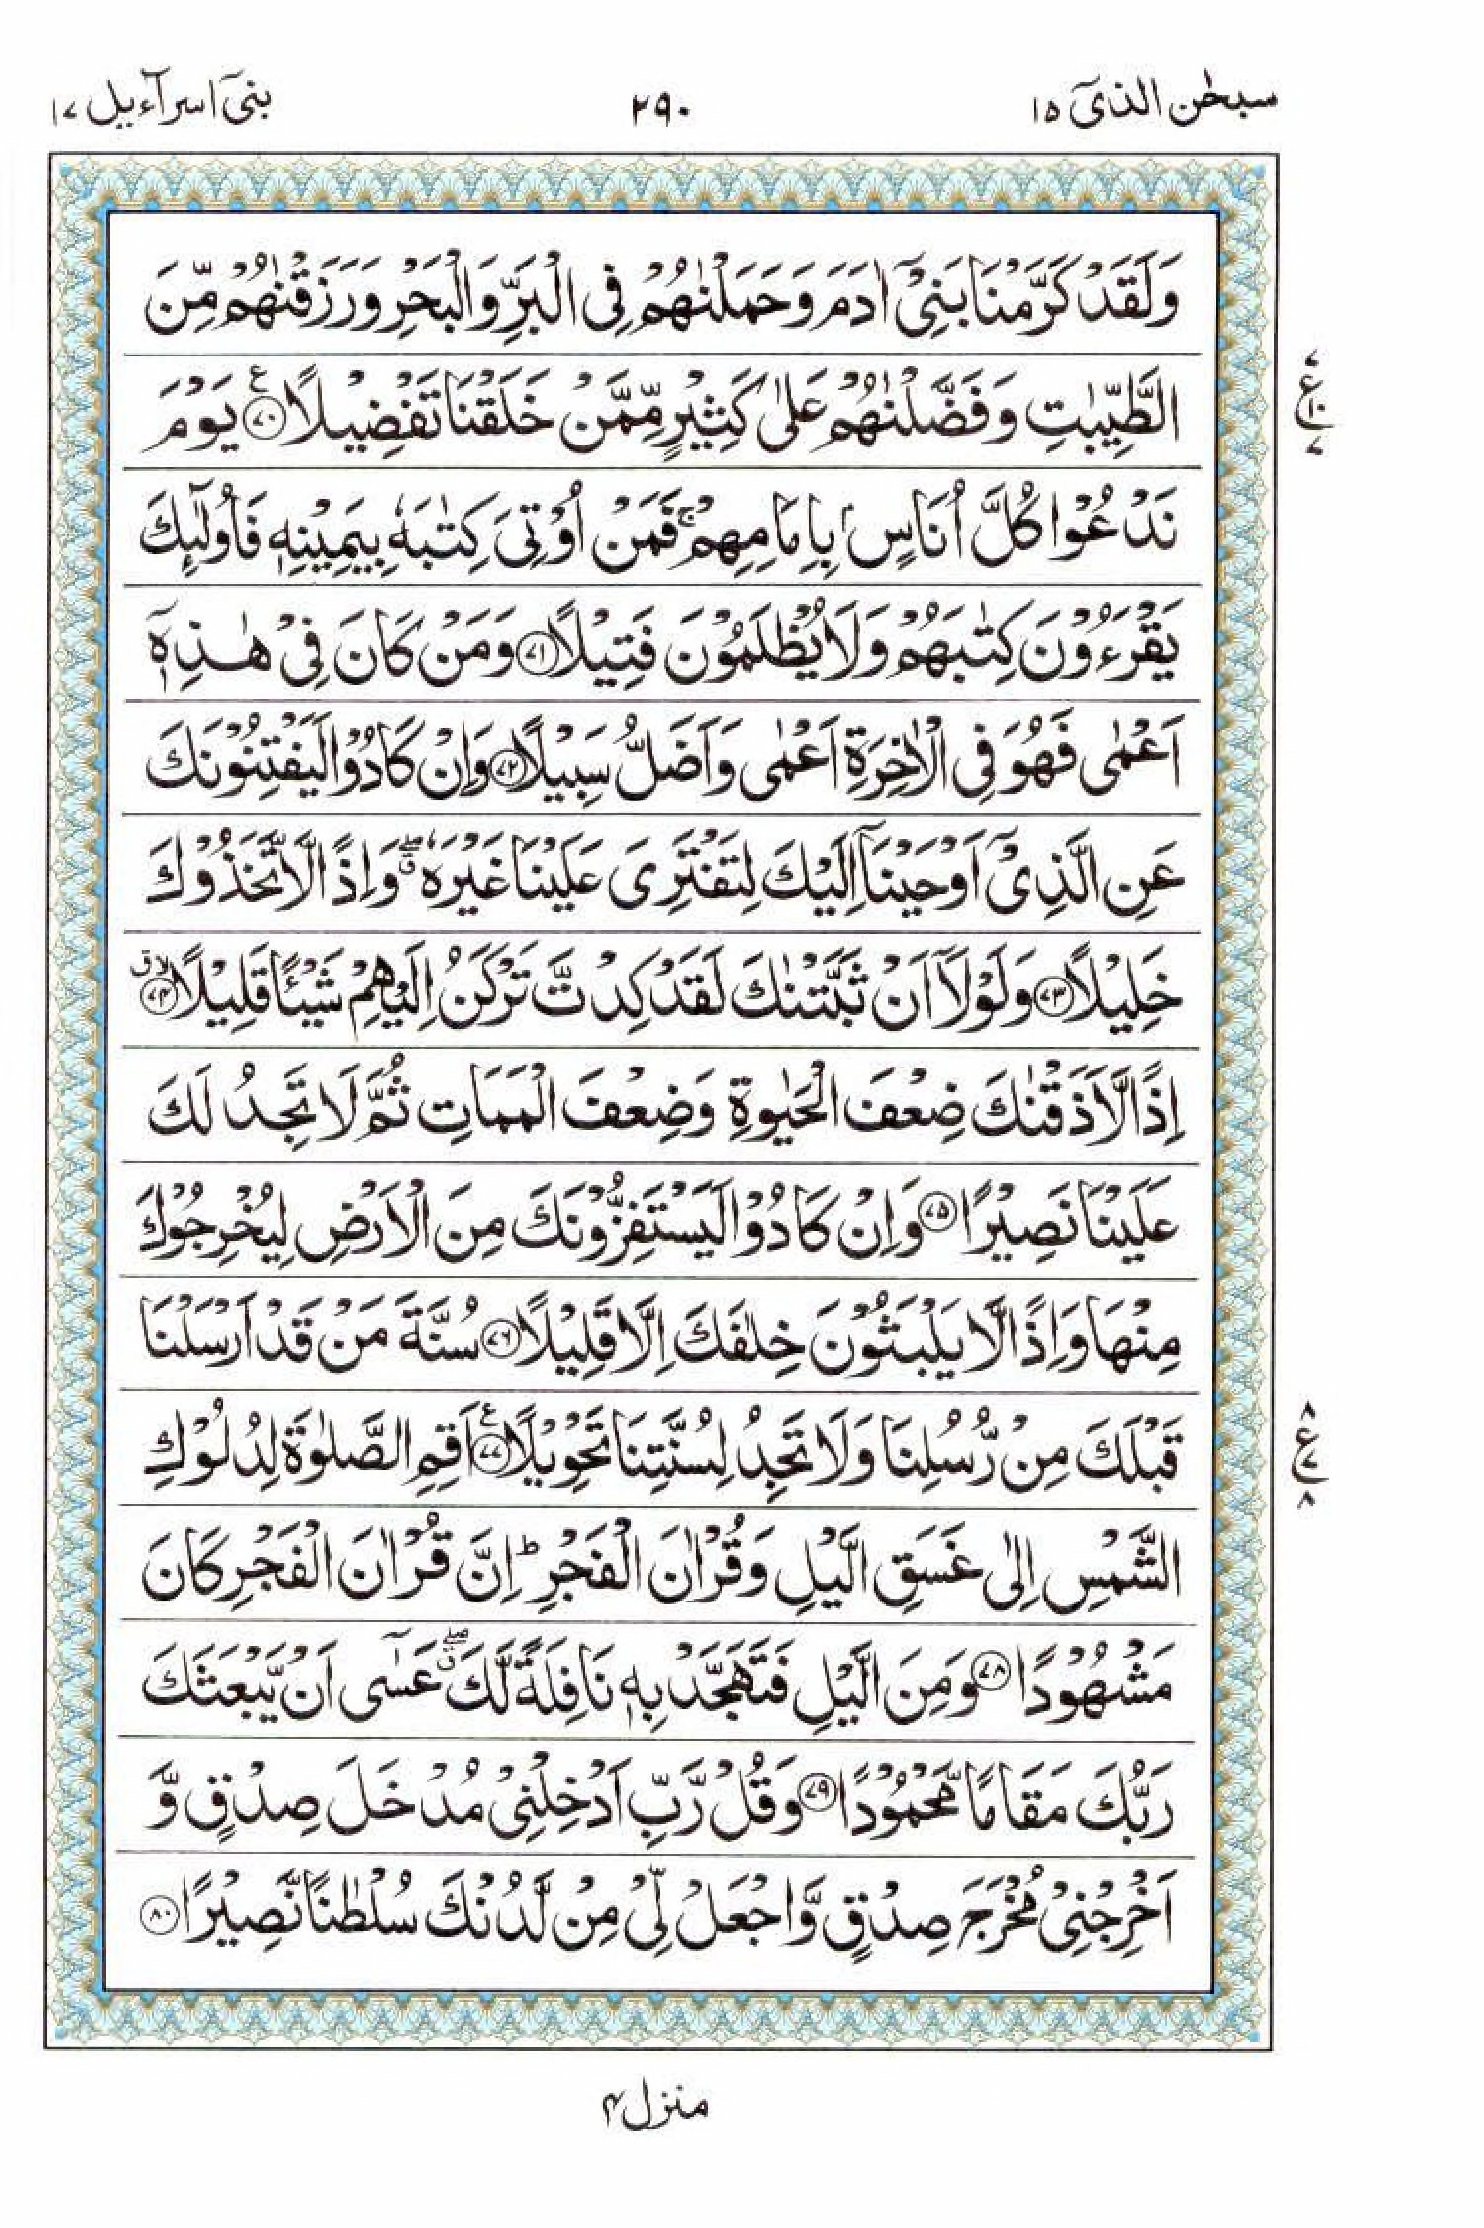 سبحٰن الذیٓ ۱۵
۲۹۰
بنیٓ اسرآءیل ۱۷
وَلَقَدْ كَرَّمْنَا بَنِيْٓ اٰدَمَ وَحَمَلْنٰهُمْ فِي الْبَرِّ وَالْبَحْرِ وَرَزَقْنٰهُمْ مِّنَ
الطَّيِّبٰتِ وَفَضَّلْنٰهُمْ عَلٰى كَثِيْرٍ مِّمَّنْ خَلَقْنَا تَفْضِيْلًا ۧ‏﴿۷۰﴾ يَوْمَ
نَدْعُوْا كُلَّ اُنَاسٍۭ بِاِمَامِهِمْ ۚ فَمَنْ اُوْتِيَ كِتٰبَهٗ بِيَمِيْنِهٖ فَاُولٰٓئِكَ
يَقْرَءُوْنَ كِتٰبَهُمْ وَلَا يُظْلَمُوْنَ فَتِيْلًا ﴿۷۱﴾ وَمَنْ كَانَ فِيْ هٰذِهٖٓ
اَعْمٰى فَهُوَ فِي الْاٰخِرَةِ اَعْمٰى وَاَضَلُّ سَبِيْلًا ﴿۷۲﴾ وَاِنْ كَادُوْا لَيَفْتِنُوْنَكَ
عَنِ الَّذِيْٓ اَوْحَيْنَآ اِلَيْكَ لِتَفْتَرِيَ عَلَيْنَا غَيْرَهٗ ۖق وَاِذًا لَّاتَّخَذُوْكَ
خَلِيْلًا ﴿۷۳﴾ وَلَوْلَآ اَنْ ثَبَّتْنٰكَ لَقَدْ كِدْتَّ تَرْكَنُ اِلَيْهِمْ شَيْـًٔا قَلِيْلًا ﴿۷۴﴾ لا ق
اِذًا لَّاَذَقْنٰكَ ضِعْفَ الْحَيٰوةِ وَضِعْفَ الْمَمَاتِ ثُمَّ لَا تَجِدُ لَكَ
عَلَيْنَا نَصِيْرًا ﴿۷۵﴾ وَاِنْ كَادُوْا لَيَسْتَفِزُّوْنَكَ مِنَ الْاَرْضِ لِيُخْرِجُوْكَ
مِنْهَا وَاِذًا لَّا يَلْبَثُوْنَ خِلٰفَكَ اِلَّا قَلِيْلًا ﴿۷۶﴾ سُنَّةَ مَنْ قَدْ اَرْسَلْنَا
قَبْلَكَ مِنْ رُّسُلِنَا وَلَا تَجِدُ لِسُنَّتِنَا تَحْوِيْلًا ﴿۷۷﴾ ع اَقِمِ الصَّلٰوةَ لِدُلُوْكِ
الشَّمْسِ اِلٰى غَسَقِ الَّيْلِ وَقُرْاٰنَ الْفَجْرِ ؕ اِنَّ قُرْاٰنَ الْفَجْرِ كَانَ
مَشْهُوْدًا ﴿۷۸﴾ وَمِنَ الَّيْلِ فَتَهَجَّدْ بِهٖ نَافِلَةً لَّكَ ۖق عَسٰٓى اَنْ يَّبْعَثَكَ
رَبُّكَ مَقَامًا مَّحْمُوْدًا ﴿۷۹﴾ وَقُلْ رَّبِّ اَدْخِلْنِيْ مُدْخَلَ صِدْقٍ وَّ
اَخْرِجْنِيْ مُخْرَجَ صِدْقٍ وَّاجْعَلْ لِّيْ مِنْ لَّدُنْكَ سُلْطٰنًا نَّصِيْرًا ﴿۸۰﴾
۷
ع ۱۰
۷
۸
ع ۷
۸
منزل ۴